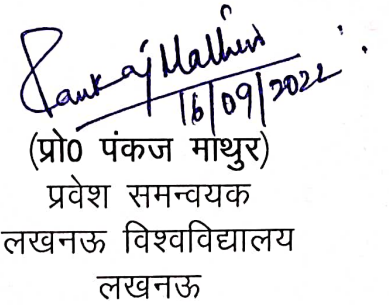 Pankaj Mathur
16/09/2022
(प्रो0 पंकज माथुर)
प्रवेश समन्वयक
लखनऊ विश्वविद्यालय
लखनऊ